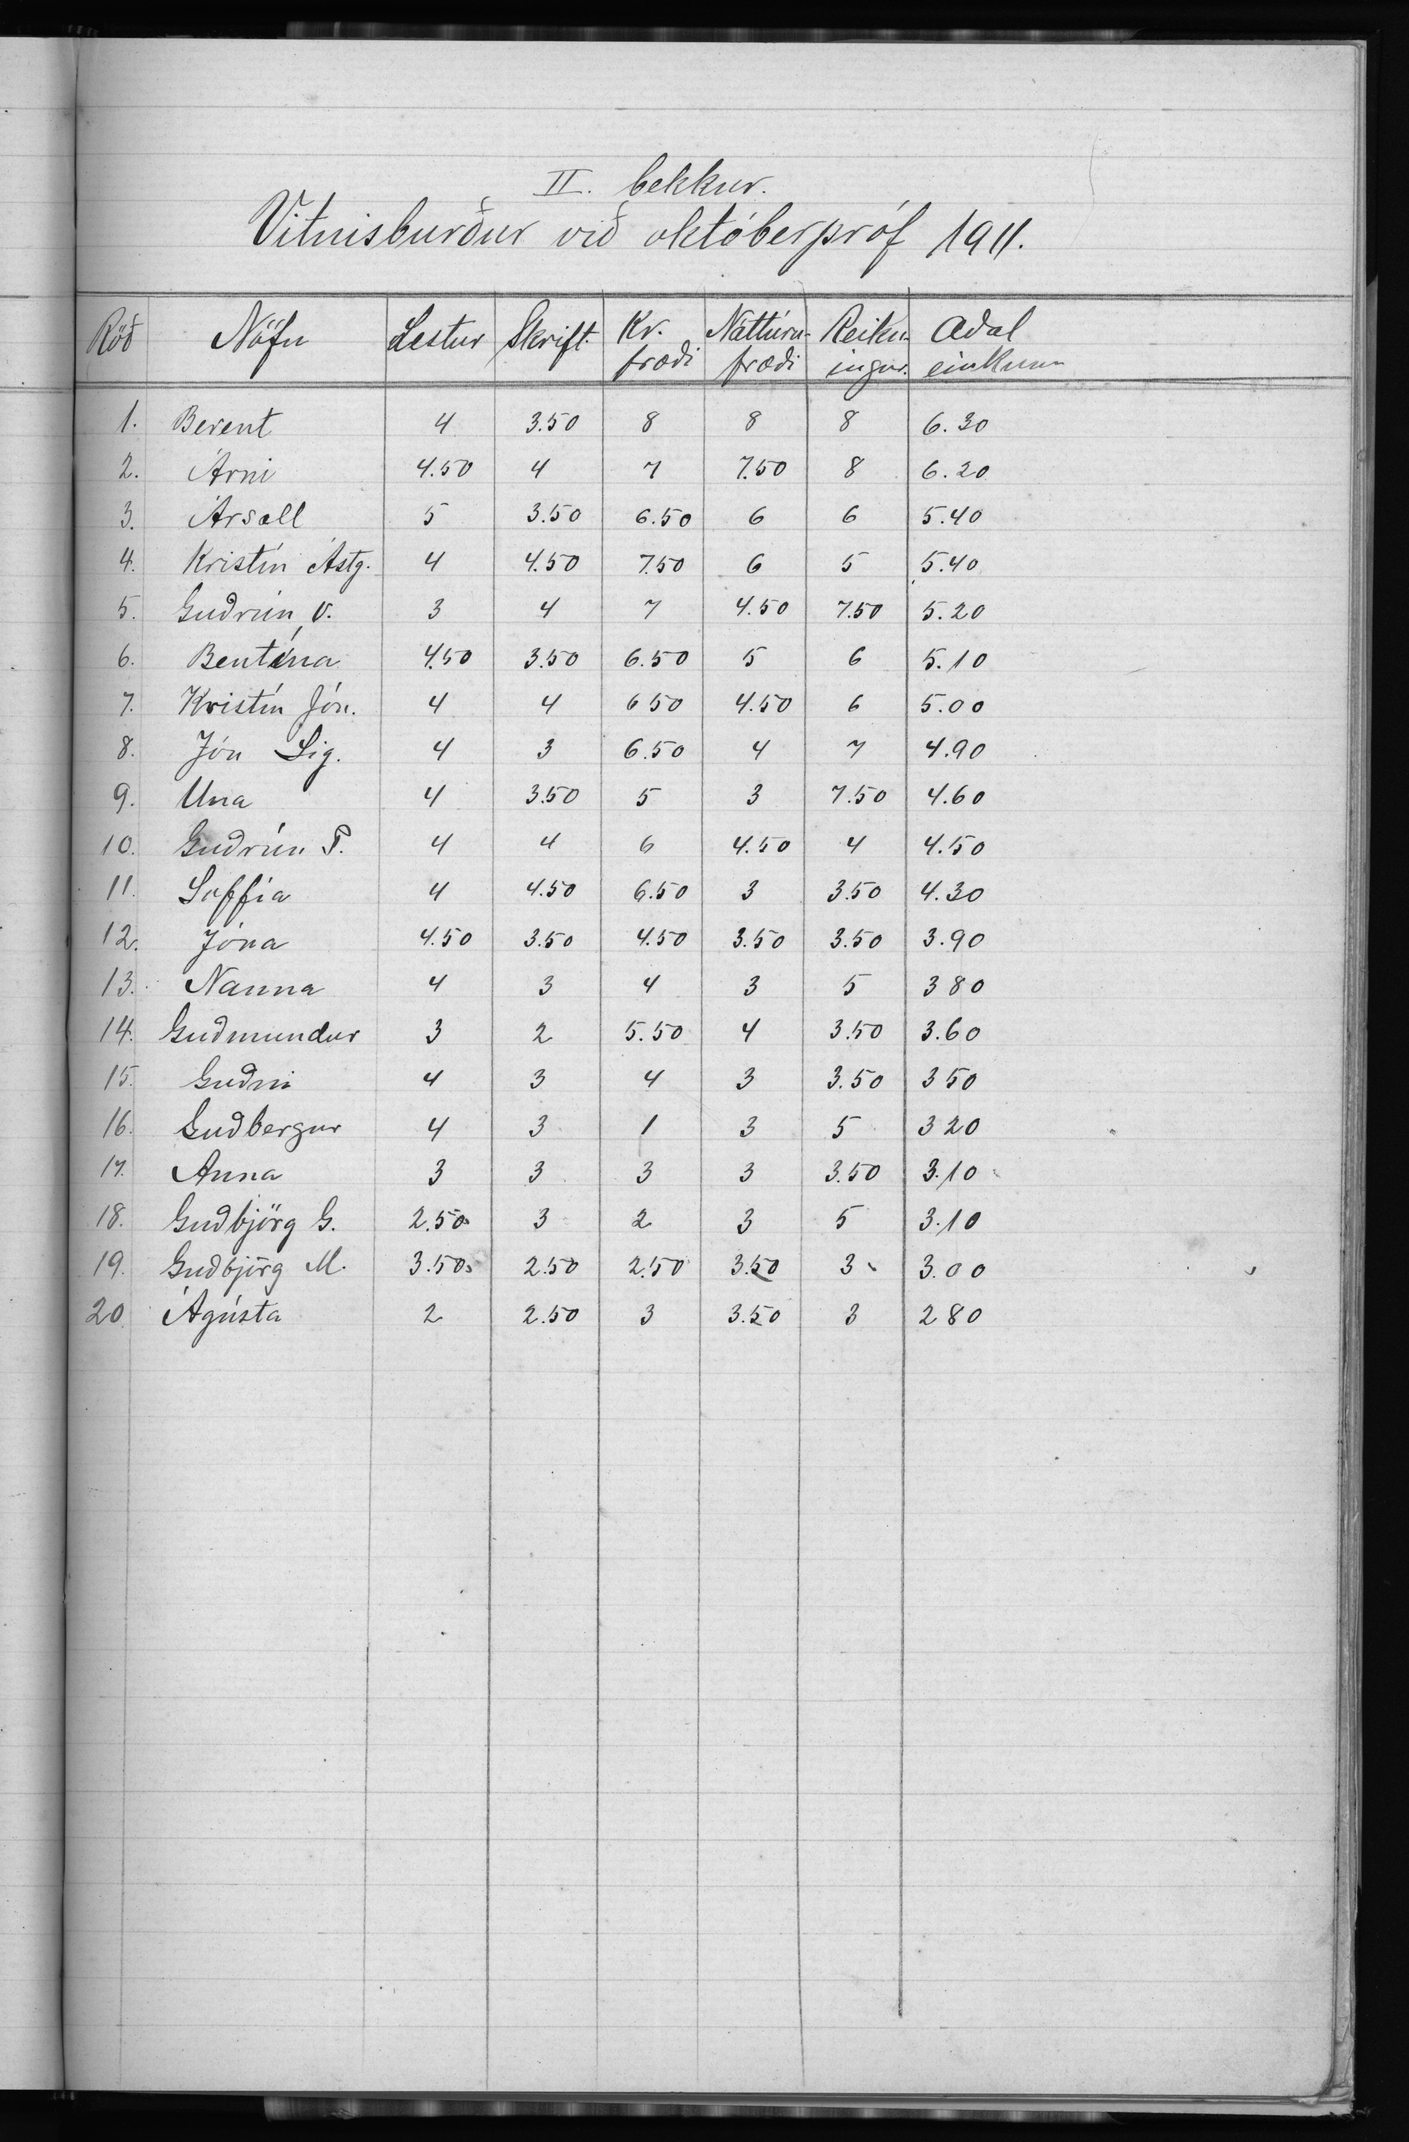 II. bekkur.
Vitnisburður við októberpróf 1911.
Röð Nöfn Lestur Skrift. Kv. fræði Náttúru- fræði Reikn- ingur. Aðal einkunn
1. Berent 4 3.50 8 8 8 6.30
2. Árni 4.50 4 7 7.50 8 6.20
3. Ársæll 5 3.50 6.50 6 6 5.40
4. Kristín Ástg. 4 4.50 7.50 6 5 5.40
5. Guðrún V. 3 4 7 4.50 7.50 5.20
6. Bentína 4.50 3.50 6.50 5 6 5.10
7. Kristín Jón. 4 4 6 50 4.50 6 5.00
8. Jón Sig. 4 3 6.50 4 7 4.90
9. Una 4 3.50 5 3 7.50 4.60
10. Guðrún P. 4 4 6 4.50 4 4.50
11. Soffía 4 4.50 6.50 3 3.50 4.30
12. Jóna 4.50 3.50 4.50 3.50 3.50 3.90
13. Nanna 4 3 4 3 5 3 80
14. Guðmundur 3 2 5.50 4 3.50 3.60
15. Guðni 4 3 4 3 3.50 3 50
16. Guðbergur 4 3 1 3 5 3 20
17. Anna 3 3 3 3 3.50 3.10
18. Guðbjörg G. 2.50 3 2 3 5 3.10
19. Guðbjörg M. 3.50 2.50 2.50 3.50 3 3.00
20 Ágústa 2 2.50 3 3.50 3 2 80